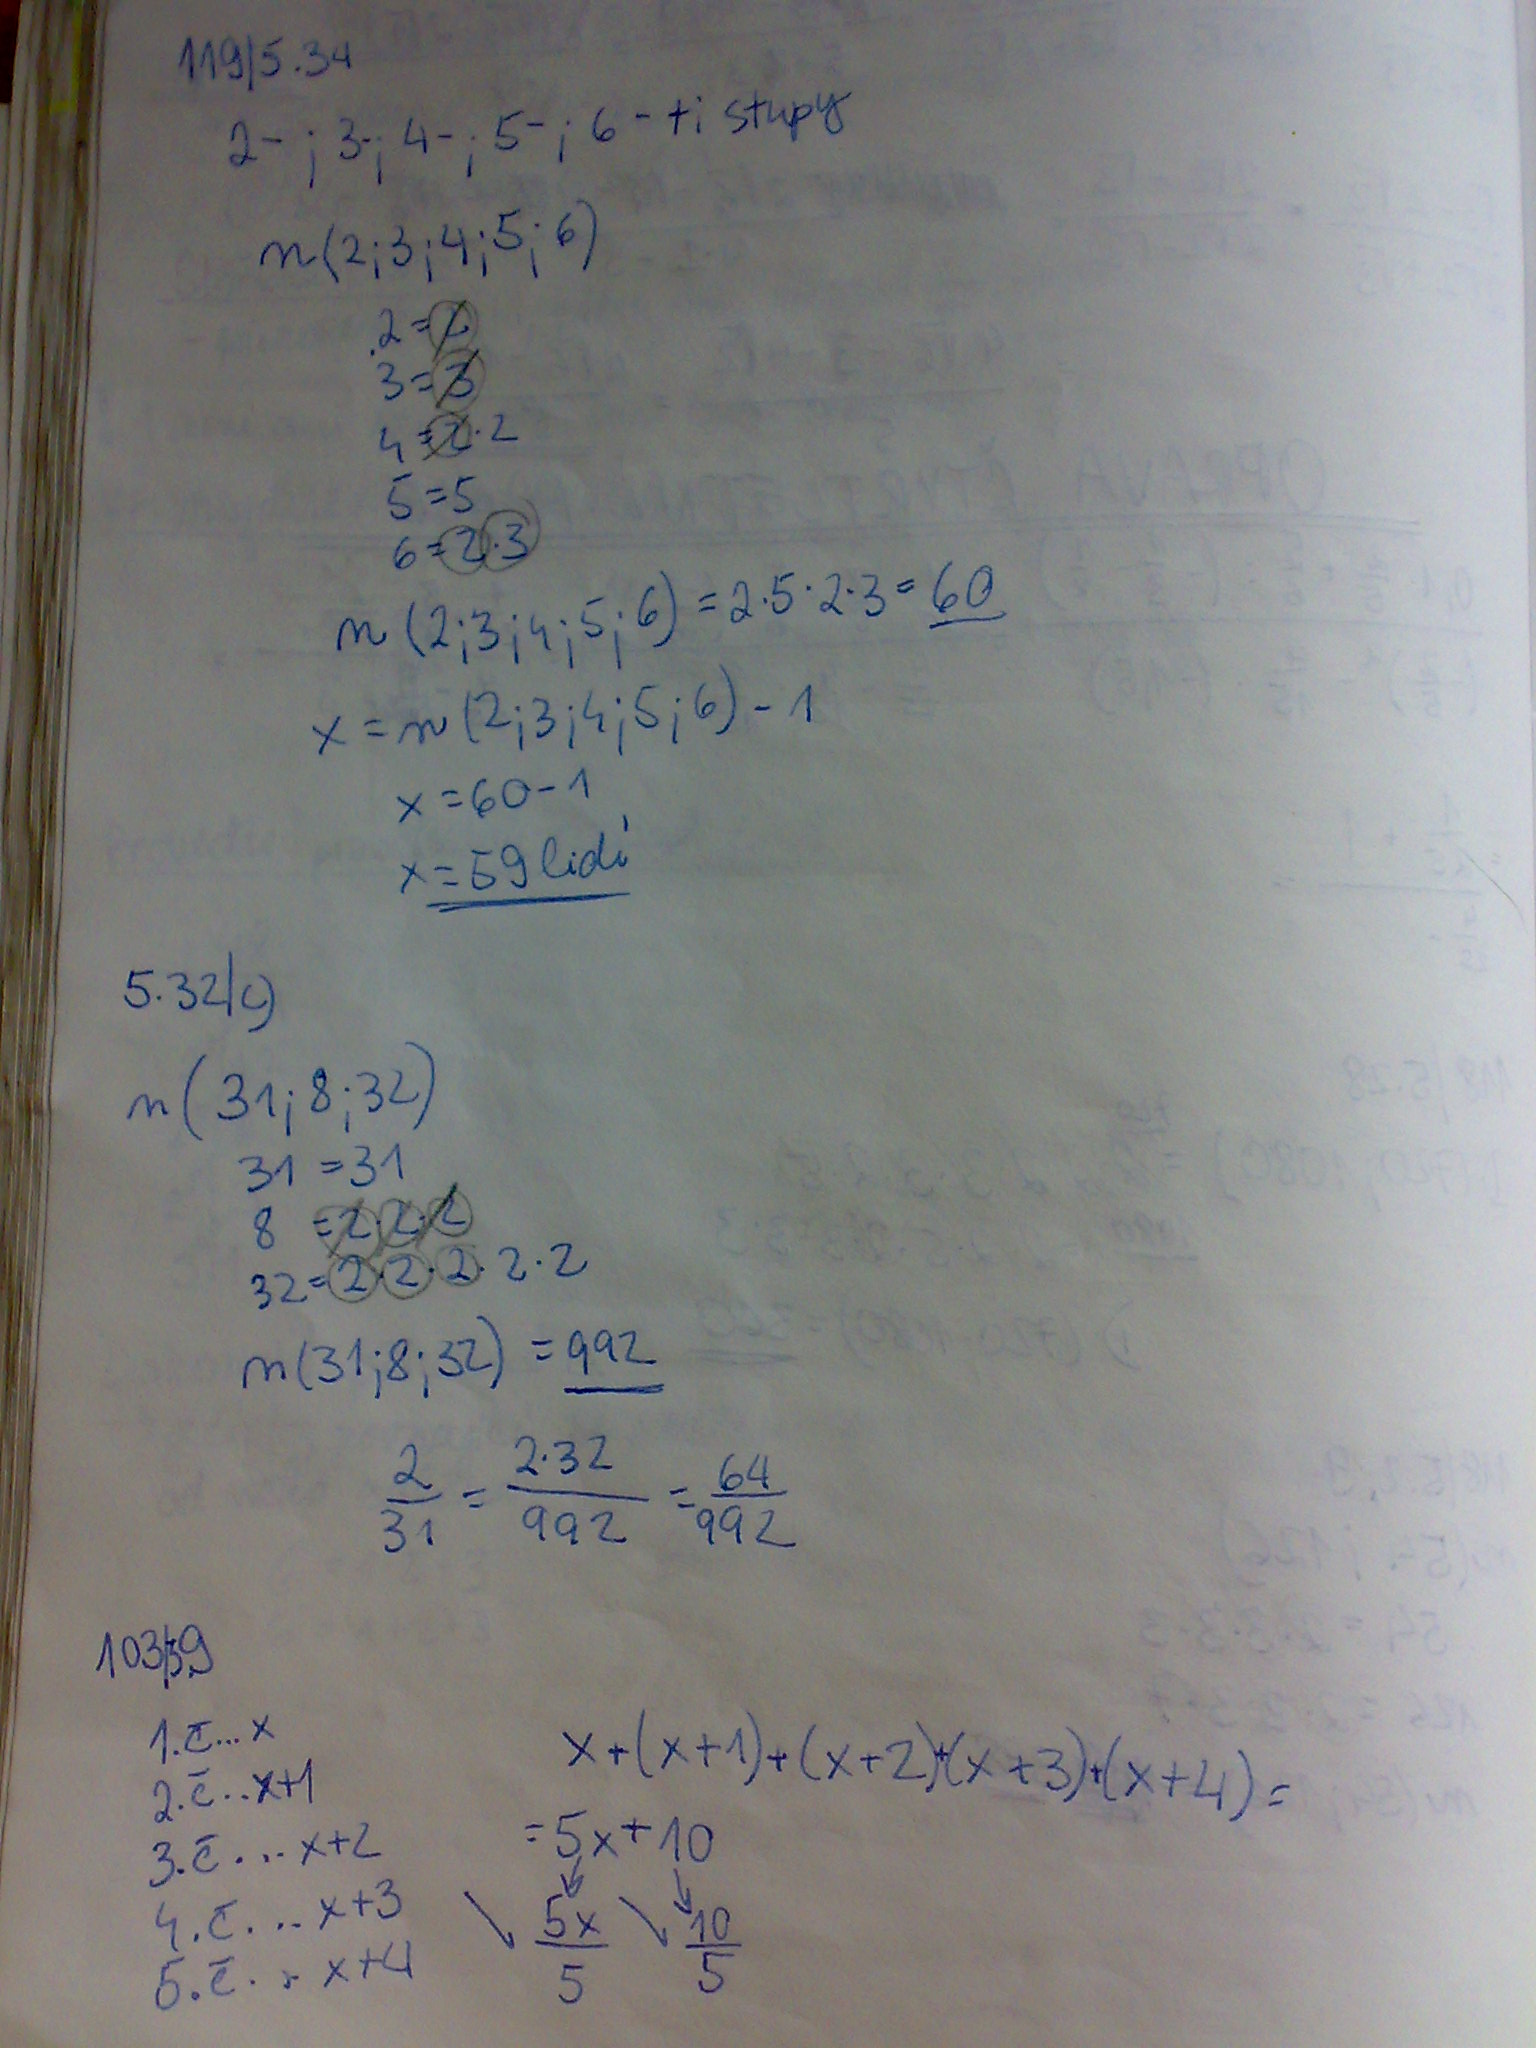 119/5.34
2- ; 3-; 4- ; 5- ; 6 - ti stupy
n(2;3;4;5;6)
2=2
3=3
4=2·2
5=5
6=2·3
n (2;3;4;5;6) = 2·5·2·3 = 60
x = n (2;3;4;5;6) - 1
x = 60 - 1
x = 59 lidí
5.32/c)
n( 31; 8; 32)
31 = 31
8 = 2·2·2
32 = 2·2·2·2·2
n(31;8;32) = 992
2/31 = 2·32/992 = 64/992
103/39
1.č... x
2.č...x+1
3.č... x+2
4.č... x+3
5.č... x+4
x+(x+1)+(x+2)+(x+3)+(x+4) =
= 5x+10
5x/5 10/5